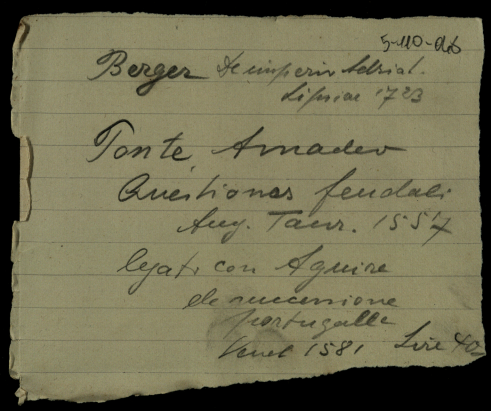 5-110-db
Berger De imperio Adriat.
Lipsiae 1723
Ponte Amadeo
Questiones feudali
Aug. Taur. 1557
legati con Aguire
de successione
portugalle
Venet 1581 Lire 40